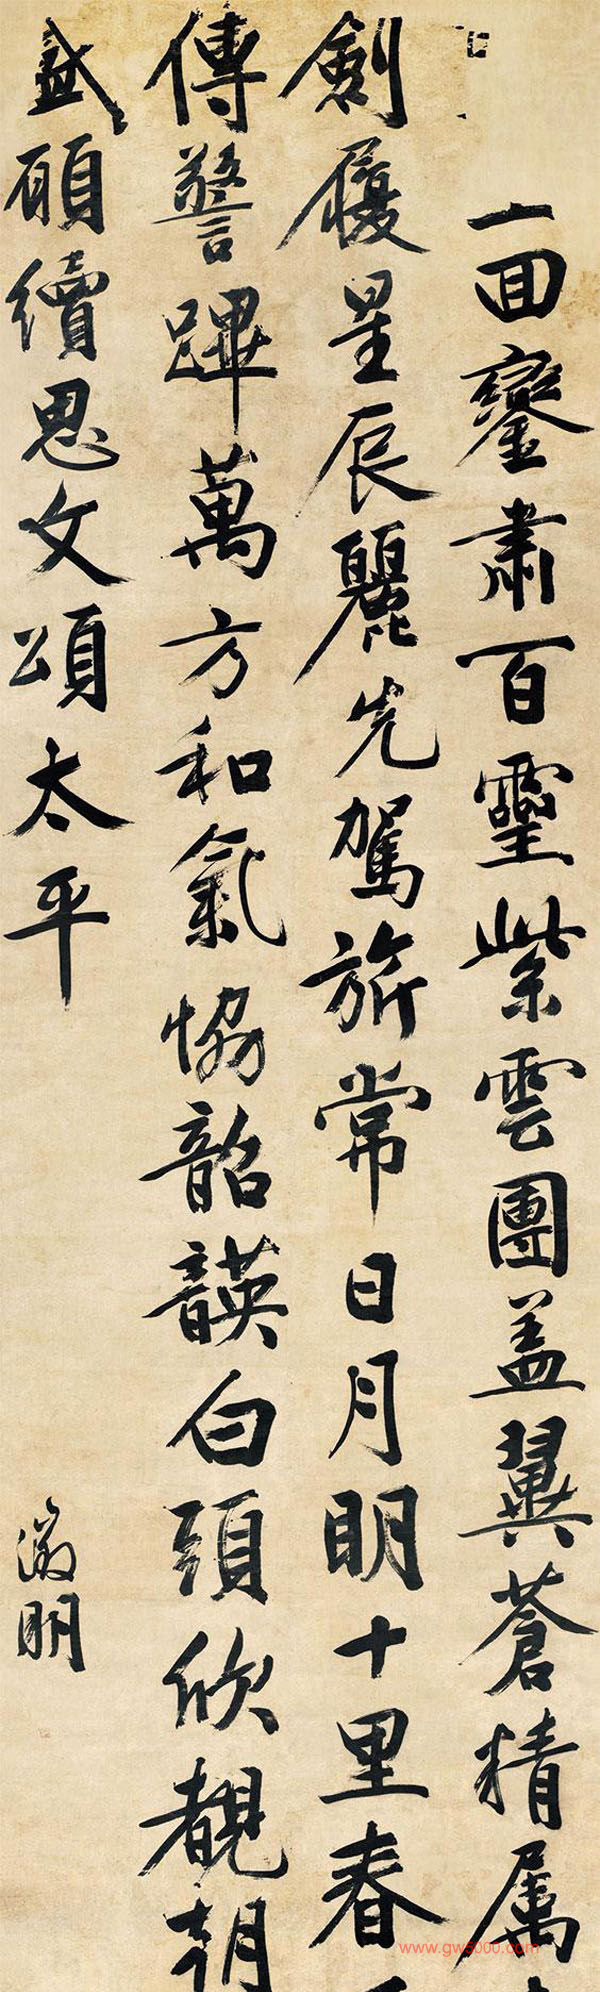 一回鑾肅百靈紫雲團盖翼蒼精属
劍履星辰麗先駕旂常日月明十里春
傳警蹕萬方和氣協韶韺白頭欣覩朝
盛願續思文頌太平
徵明
www.gw5000.com